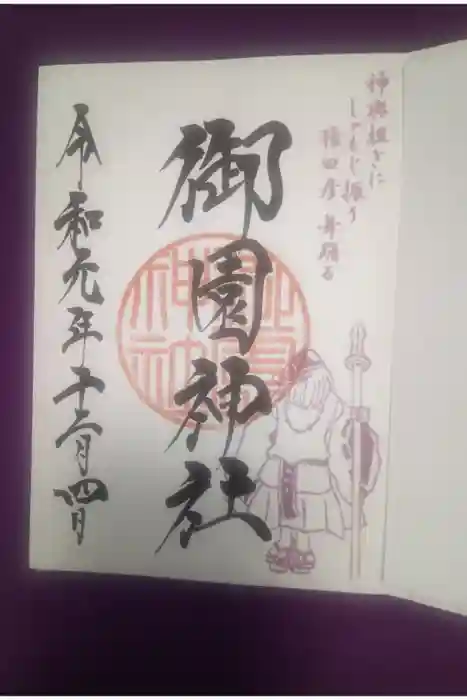 神輿担ぎに
しゃもじ振り
猿田彦舞踊る
御園神社
令和元年十二月四日